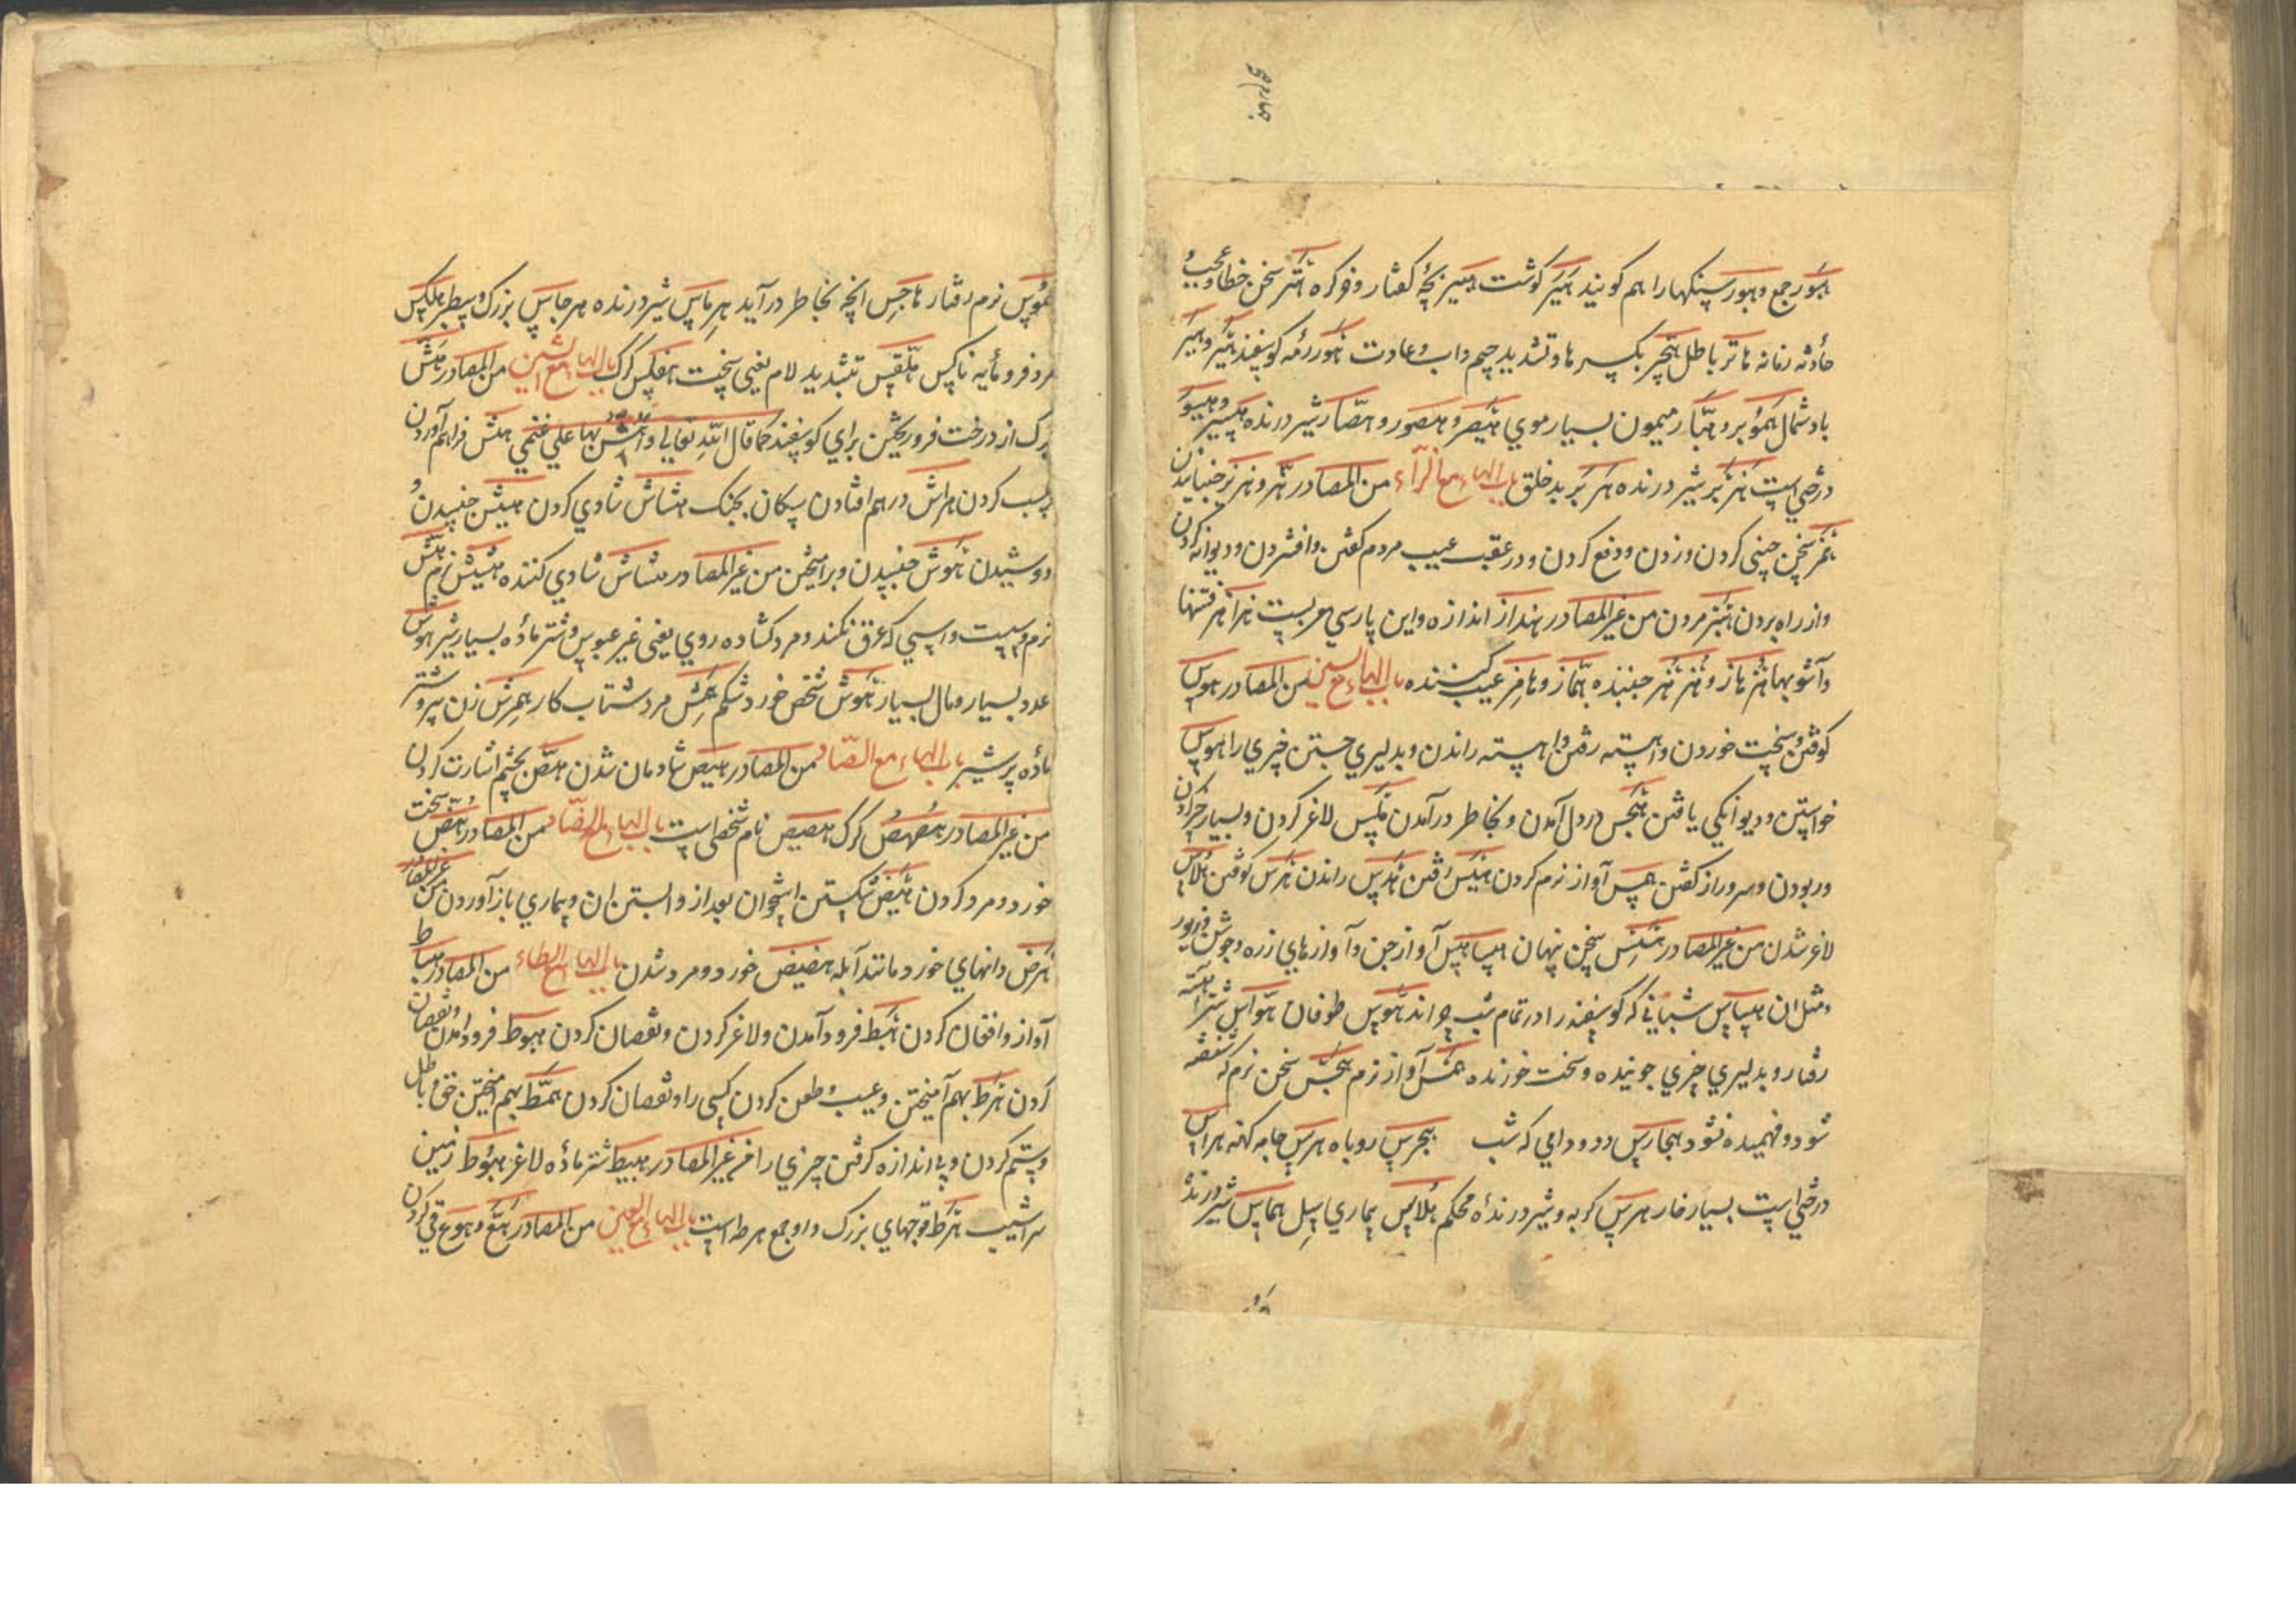 هبور جمع وهبور سپنکهارا هم کویند هبیر کوشت هبیر بچهٔ کفتار وفر کره هتر سخن خطا وعجیب و
حادثه زمانه هاتر باطل هجیر بکسر ها وتشدید جیم داب وعادت هور رمه کوسفند هیر وهیر
باد شمال هوبر وهبار میمون بسیار موی هیصر وهصور وهصار شیر درنده هیسر وهیسور
درختی است هزبر شیر درنده هزنبر بد خلق باب الهاء مع الزّاء من المصادر هز وهزیز جنبانیدن
همز سخن چینی کردن وزدن ودفع کردن ودر عقب عیب مردم کفتن وافشردن ودیوانه کردن
واز راه بردن هبز مردن من غیر المصادر هنداز اندازه واین پارسی معربست هزاهز فتنها
وآشوبها هزهاز وهزهز جنبنده هماز وهامز عیب کننده باب الهاء مع السین من المصادر هوس
کوفتن وسخت خوردن واهسته رفتن واهسته راندن وبدلیری جستن چیزی را هوس
خواستن ودیوانکی یافتن هجس در دل آمدن وبخاطر درآمدن هلس لاغر کردن وبسیار خیر کردن
وربودن وسر وراز کفتن همس آواز نرم کردن هیس رفتن هدس راندن هرس کوفتن هلاس
لاغر شدن من غیر المصادر سخن پنهان هساهس آواز جن وآوازهای زره وجوشن وزیور
ومثل ان هسهاس شبانی که کوسفند را در تمام شب چراند هوس طوفان هواس شتر اهسته
رفتار وبدلیری چیزی جوینده وسخت خورنده همس آواز نرم هجس سخن نرم که شنفته
شود وفهمیده نشود هجارس دد ودامی که شب هجرس روباه هرس جامه کهنه هراس
درختی است بسیار خار هرس کربه وشیر درندهٔ محکم هلاس بیماری سل هماس شیر درنده
هموس نرم رفتار هاجس انچه بخاطر درآید هرماس شیر درنده هرجاس بزرک وسطبر هلکس
مرد فرومایه ناکس هلقس بتشدید لام یعنی سخت هفلس کرک باب الهاء مع الشین من المصادر هش
برک از درخت فرو ریختن برای کوسفند کما قال الله تعالی واهش بها علی غنمی هبش فراهم آوردن
وکسب کردن هراش درهم افتادن سکان بجنک هشاش شادی کردن هیش جنبیدن و
دوشیدن هوش جنبیدن وبرامیختن من غیر المصادر هشاش شادی کننده هشیش نرم هش
نرم وسست واسپی که عرق نکند ومرد کشاده روی یعنی غیر عبوس وشتر ماده بسیار شیر هوش
عدد بسیار ومال بسیار هوش شخص خورد شکم همش مرد شتاب کار همرش زن پیر وشتر
ماده پر شیر باب الهاء مع الصّاد من المصادر هبص شادمان شدن هبص بچشم اشارت کردن
من غیر المصادر هصهص کرک هصیص نام شخصی است باب الهاء مع الضّاد من المصادر هض سخت
خورد ومرد کردن هیض شکستن استخوان بعد از وابستن ان وبیماری باز آوردن من غیر المصادر
هرض دانهای خورد مانند آبله هضیض خورد ومرد شدن باب الهاء مع الطاء من المصادر هیاط
آواز وافغان کردن هبط فرود آمدن ولاغر کردن ونقصان کردن هبوط فرود آمدن ونقصان
کردن هرط بهم آمیختن وعیب وطعن کردن کسی را ونقصان کردن همط بهم آمیختن حق وباطل
وستم کردن وبی اندازه کرفتن چیزی را من غیر المصادر هبیط شتر ماده لاغر هبوط زمین
سراشیب هرط قوچهای بزرک واو جمع هرطه است باب الهاء مع العین من المصادر هع وهوع قی کردن